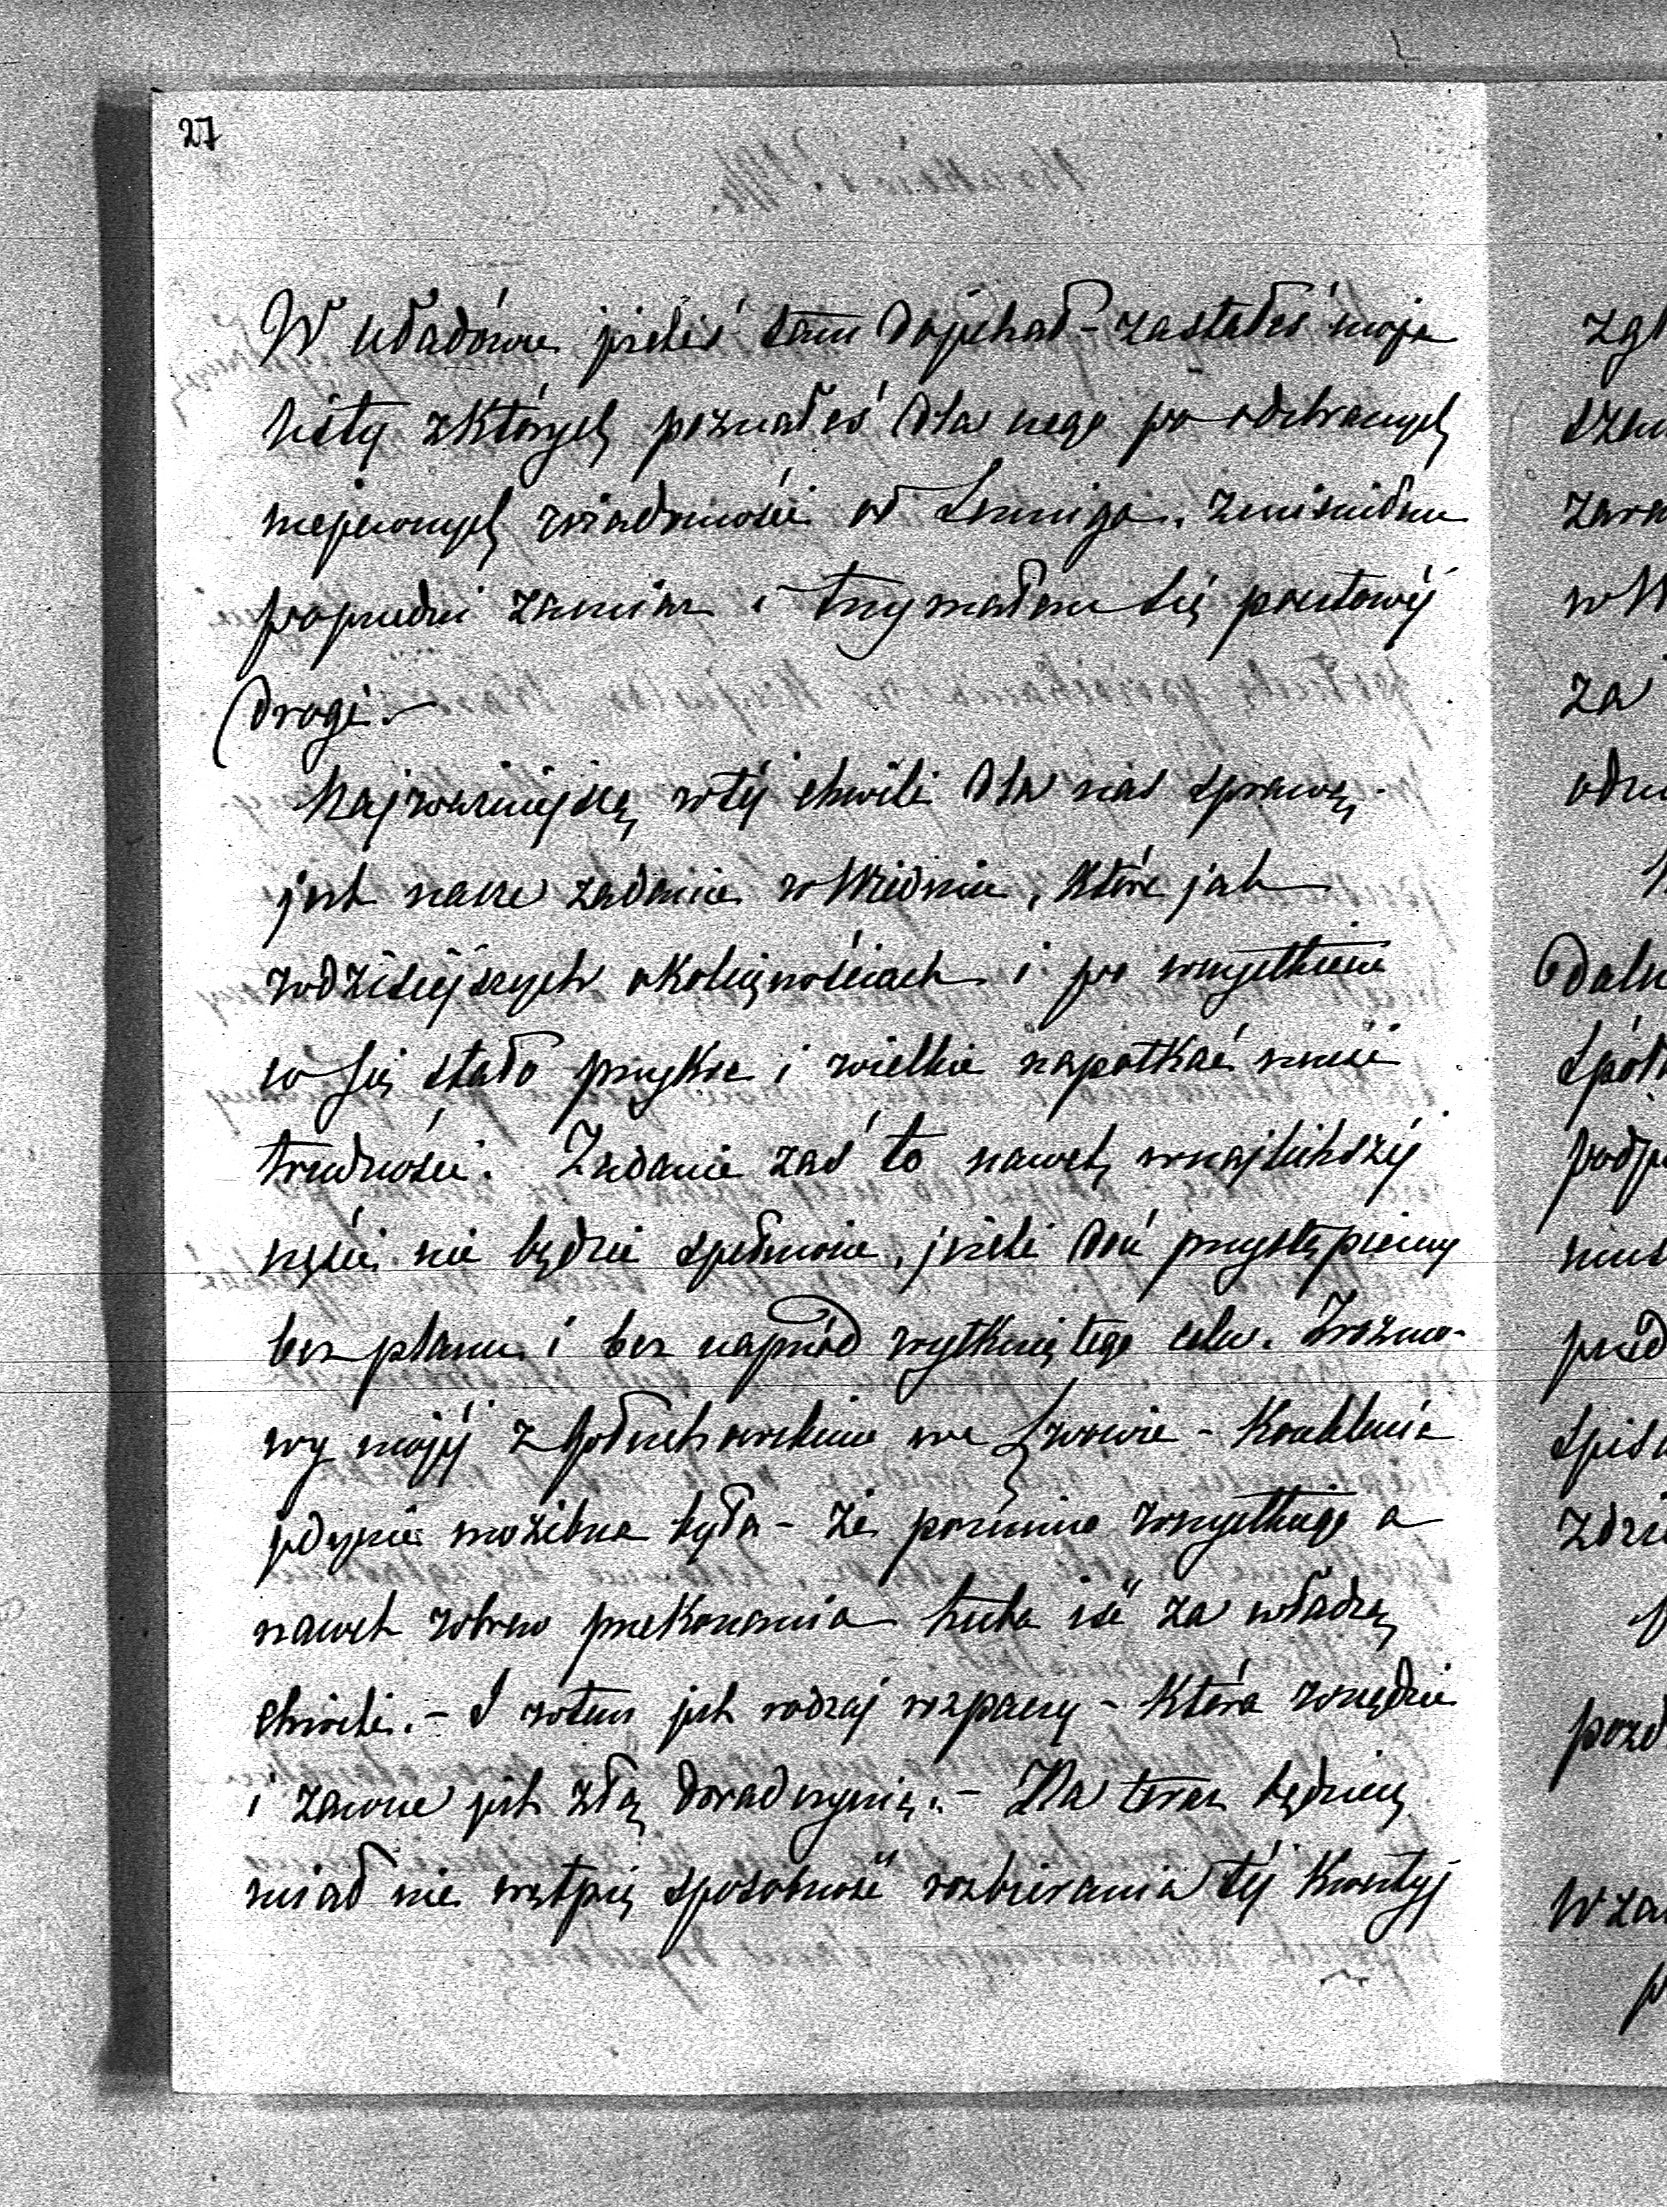 27
W Uładówce jeżeliś tam dojechał - zastałeś moje
listy z których poznałeś dla czego po odebranych
niepewnych wiadomości od zmieniłem
poprzedni zamiar i trzymałem się pocztowéj
drogi. -
Najważniejszą w téj chwili dla nas sprawą
jest nasze zadanie w Wiedniu, które jak
w dzisiejszych okolicznościach i po wszystkiem
co się stało przykre i wielkie napotkać musi
trudności. Zadanie zaś to nawet w najlichszéj
części nie będzie spełnione, jeżeli doń przystąpiemy
bez planu i bez naprzód wytkniętego celu. Z rozmo-
wy mojéj z Gołuchowskim we Lwowie - konkluzia
jedynie możebna była - że pomimo wszystkiego a
nawet wbrew przekonania trzeba iść za władzą
chwili. - I w tem jest rodzaj rozpaczy - która wszędzie
i zawsze jest złą doradczynią. - Na teraz będziesz
miał nie wątpię sposobność rozbierania téj kwestyj
zgł
w W
za
podp
przed
pozd
W za